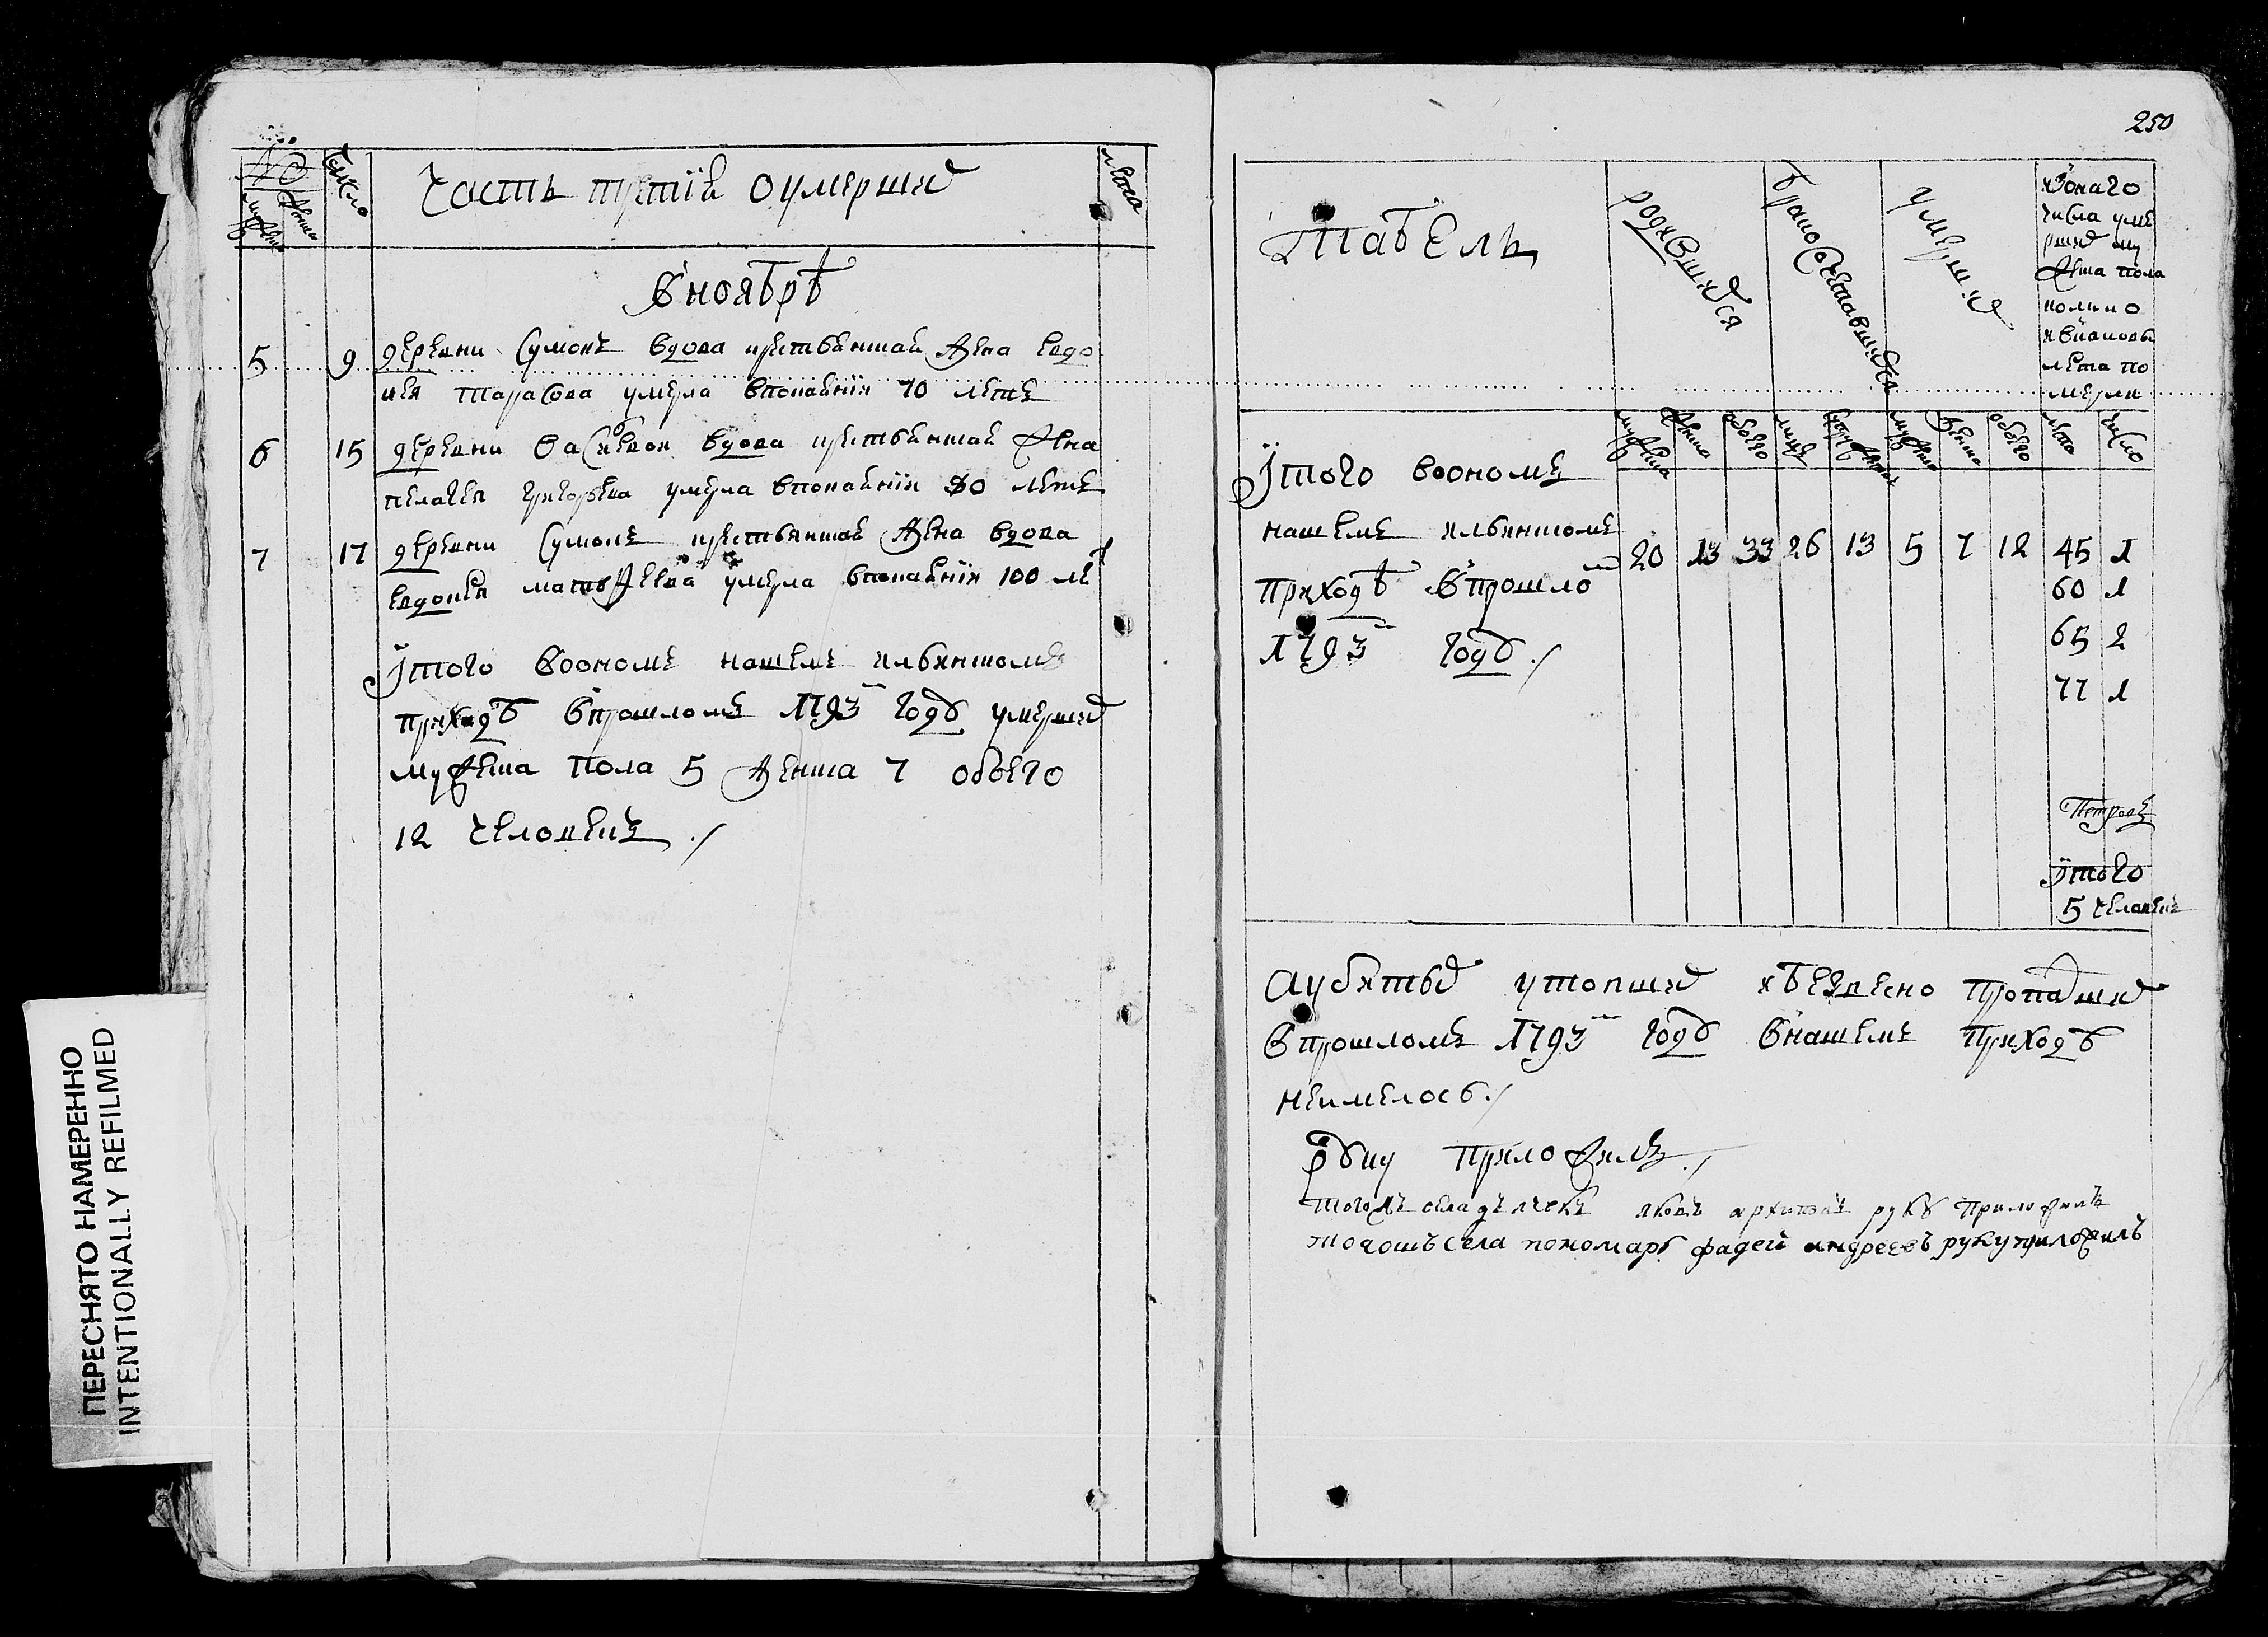 №
мужеска
женска
число
Часть третїя о умершихъ
лета
в ноябрѣ
5 9 деревни Сумокъ вдова крестьянская жена Евдо
кея Тарасова умерла в покаянїи 70 летъ
6 15 деревни вдова крестьянская жена
Пелагея Григорьева умерла в покаянїи 80 летъ
7 17 деревни Сумокъ крестьянская жена вдова
Евдокея Матвѣева умерла в покаянїи 100 лѣ
Итого во ономъ нашемъ ильинскомъ
приходѣ в прошломъ 1793м годѣ умершихъ
мужеска пола 5 женска 7 обоего
12 человекъ
250
Табель
родившихся
бракосочетавшихся
умершихъ
изонаго
числа уме
ршихъ му
жеска пола
колико
и в каковы
лета по
мерли
мужеска
женска
обоего
мужеска
женска
обоего
лета
число
Итого во ономъ
нашемъ ильинскомъ
приходѣ в прошломъ
1793м годѣ
20 13 33 26 13 5 7 12 45 1
60 1
65 2
77 1
Петровъ
Итого
5 человекъ
А убитыхъ утопшихъ и безвесно пропадшихъ
в прошломъ 1793м годѣ в нашемъ приходѣ
неимелось
руку приложилъ
тогожъ села дьячекъ архиповъ руку приложилъ
тогошъ села пономарь фадей андреевъ руку приложилъ
ПЕРЕСНЯТО НАМЕРЕННО
INTENTIONALLY REFILMED